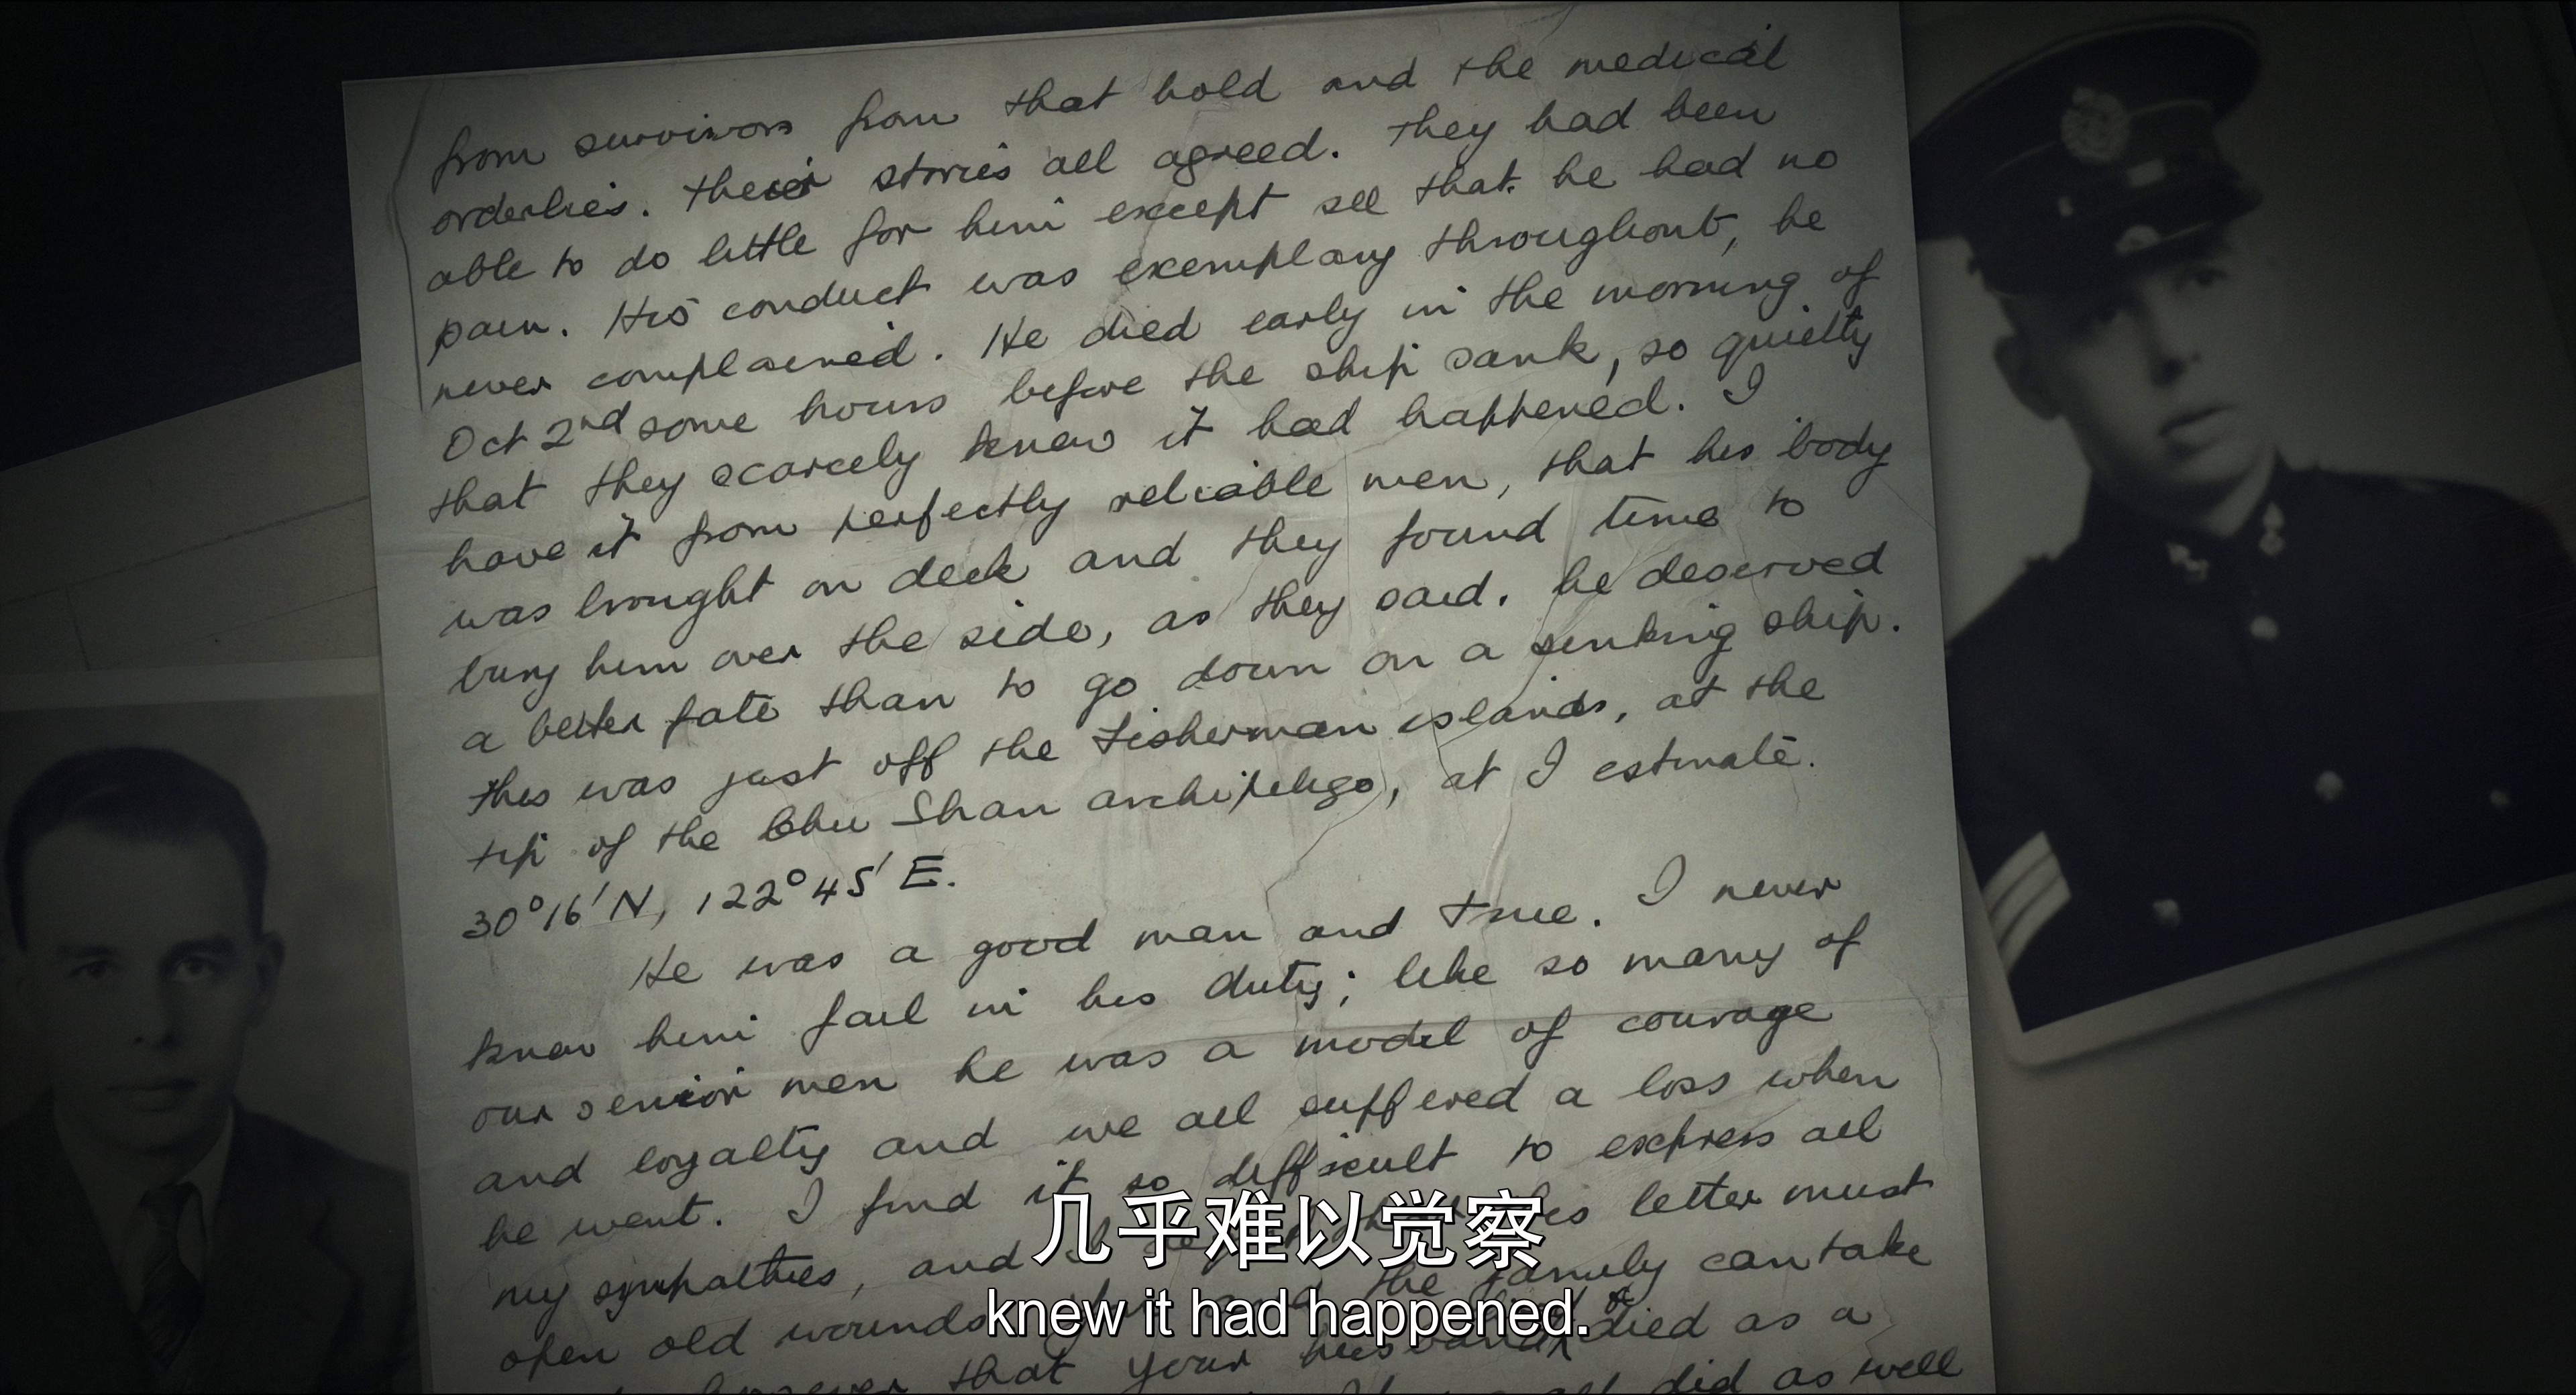 from survivors from that hold and the medical
orderlies. their stories all agreed. They had been
able to do little for him except see that he had no
pain. His conduct was exemplary throughout, he
never complained. He died early in the morning of
Oct 2nd some hours before the ship sank, so quietly
that they scarcely knew it had happened. I
have it from perfectly reliable men, that his body
was brought on deck and they found time to
bury him over the side, as they said. he deserved
a better fate than to go down on a sinking ship.
this was just off the Fisherman islands, at the
tip of the Chu Shan archipelago, at I estimate.
30°16'N, 122°45'E.
He was a good man and true. I never
knew him fail in his duty; like so many of
our senior men he was a model of courage
and loyalty and we all suffered a loss when
he went. I find it so difficult to express all
my sympathies, and letter must
open old wounds the family can take
that your husband died as a
did as well
几乎难以觉察
knew it had happened.